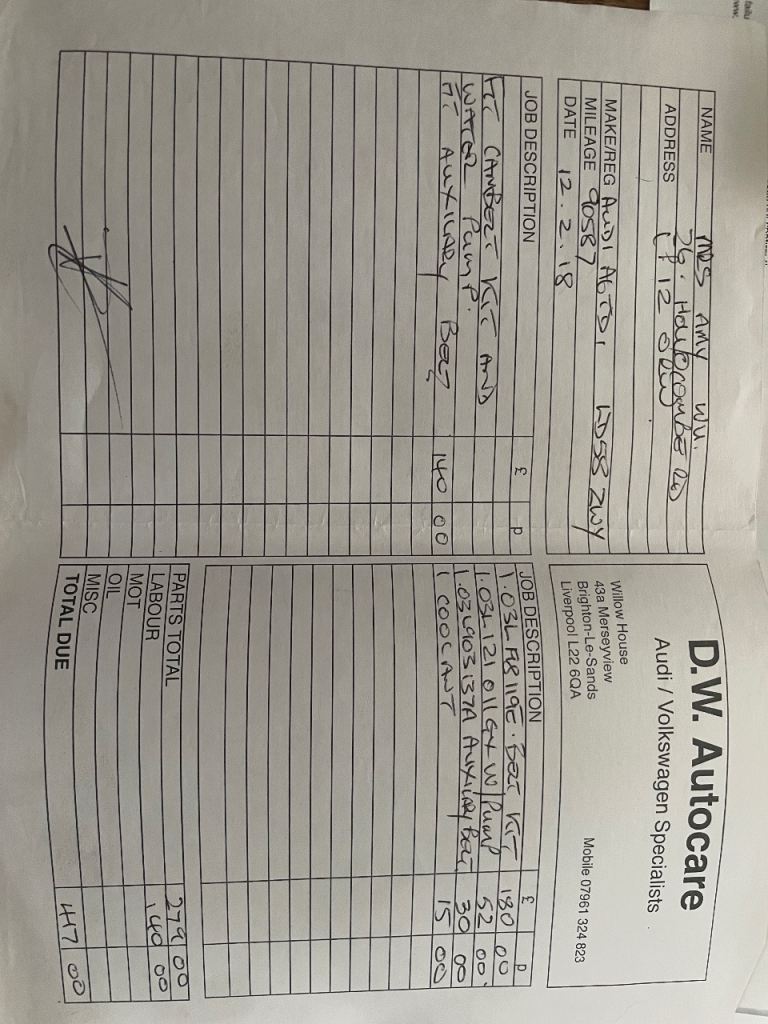 D.W. Autocare
Audi / Volkswagen Specialists
Willow House
43a Merseyview
Brighton-Le-Sands
Liverpool L22 6QA
Mobile 07961 324 823
NAME MRS AMY WU.
ADDRESS 26.
MAKE/REG AUDI A6 TDI
MILEAGE 90587
DATE 12.2.18
JOB DESCRIPTION £ P
FIT CAMBELT KIT AND
WATER PUMP.
FIT AUXILARY BELT 140 00
JOB DESCRIPTION £ P
1. BELT KIT 180 00
1. 03L 121 011 GX W/PUMP 52 00.
1. 03L903137A AUXILARY BELT. 30 00
1 COOLANT 15 00
PARTS TOTAL 00
LABOUR 140 00
MOT
OIL
MISC
TOTAL DUE 417 00